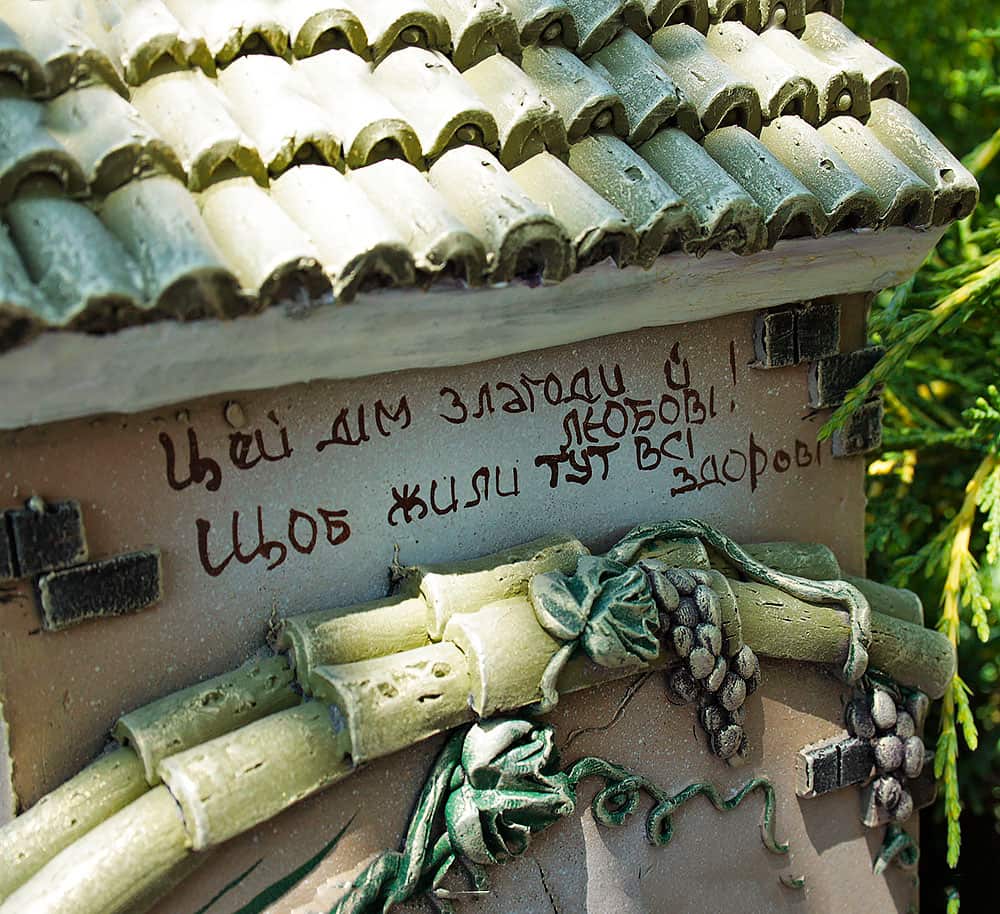 Цей дім злагоди й
любові!
Щоб жили тут всі
здорові